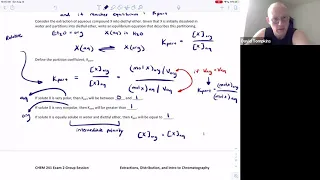 and it reaches equilibrium
Consider the extraction of aqueous compound X into diethyl ether. Given that X is initially dissolved in
water and partitions into diethyl ether, write an equilibrium equation that describes this partitioning.
Et2O = org X(aq) in H2O
X(aq) ⇌ X(org) Kpart = [X]org / [X]aq
Define the partition coefficient, Kpart.
Kpart = [X]org / [X]aq = (mol X)org / Vorg / (mol X)aq / Vaq if Vorg = Vaq
Kpart = (mol X)org / (mol X)aq
If solute X is very polar, then Kpart will be between 0 and 1
If solute X is very nonpolar, then Kpart will be greater than 1
If solute X is equally soluble in water and diethyl ether, then Kpart will be equal to 1
intermediate polarity [X]org = [X]aq
CHEM 241 Exam 2 Group Session Extractions, Distribution, and Intro to Chromatography
David Tompkins